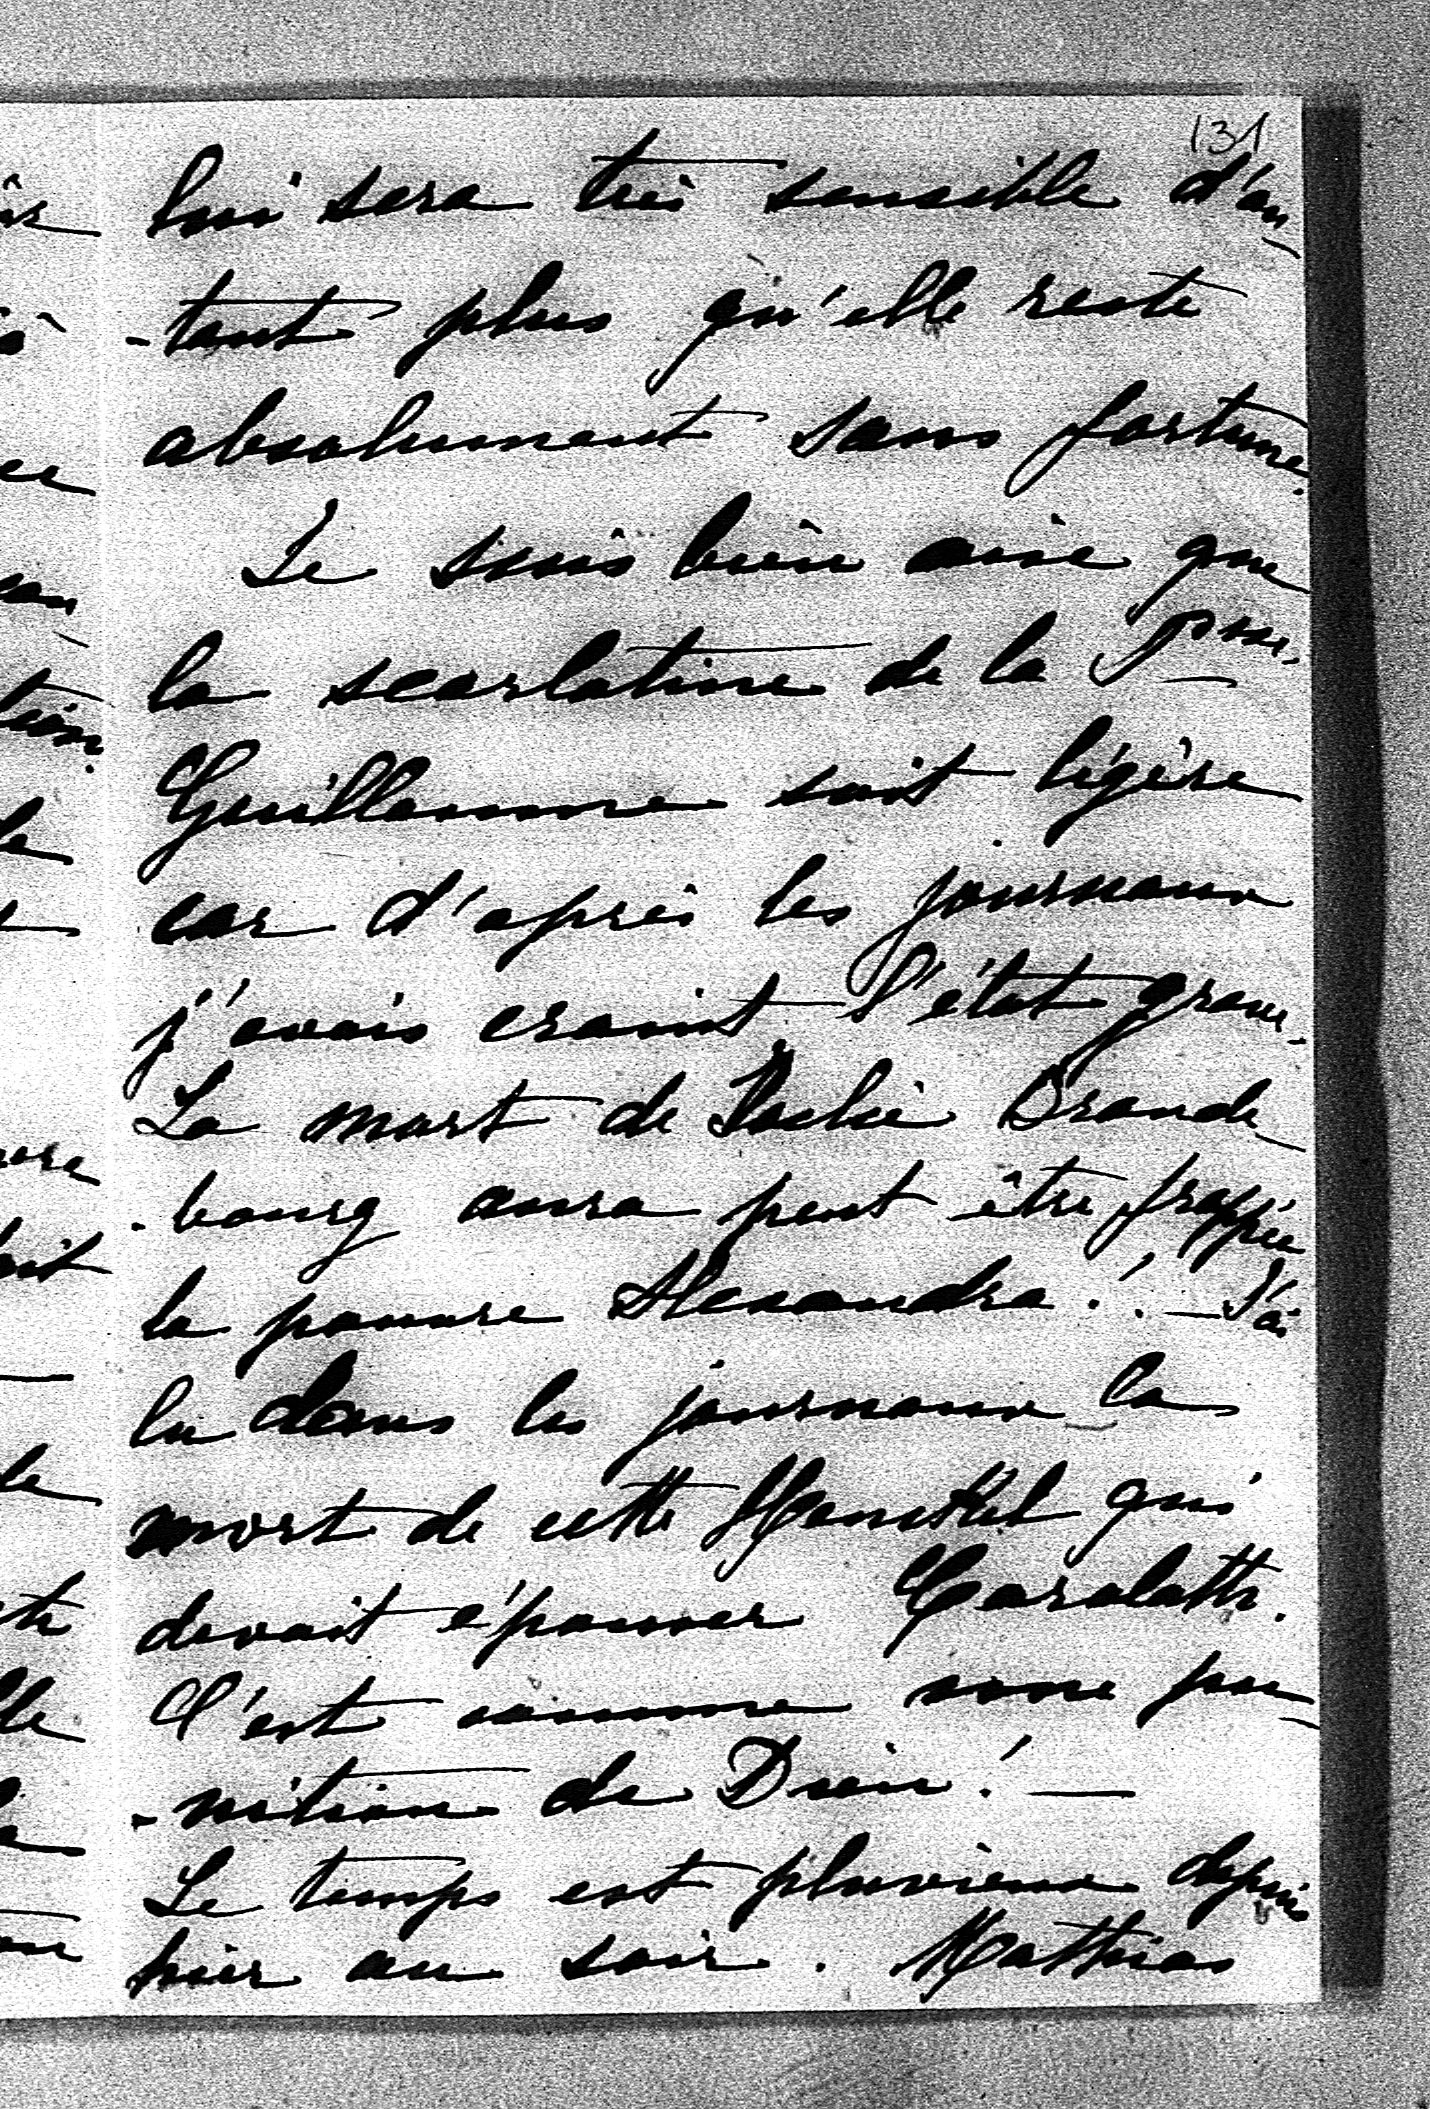 131
lui sera très sensible d'au
-tant plus qu'elle reste
absolument sans fortune.
Je suis bien aise que
la scarlatine de la Psse.
Guillaume soit légère
car d'après les journaux
j'avais craint l'état grave.
La mort de Brande
-bourg aura peut être frappée
la pauvre Alexandra! — J'ai
lu dans les journaux la
mort de cette Hanckel qui
devait épouser Carolath.
C'est comme une pu
-nition de Dieu! —
Le temps est pluvieux depuis
hier au soir. Mathias